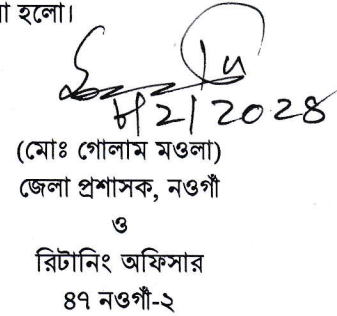 হলো।
2/2024
(মোঃ গোলাম মওলা)
জেলা প্রশাসক, নওগাঁ
ও
রিটার্নিং অফিসার
৪৭ নওগাঁ-২